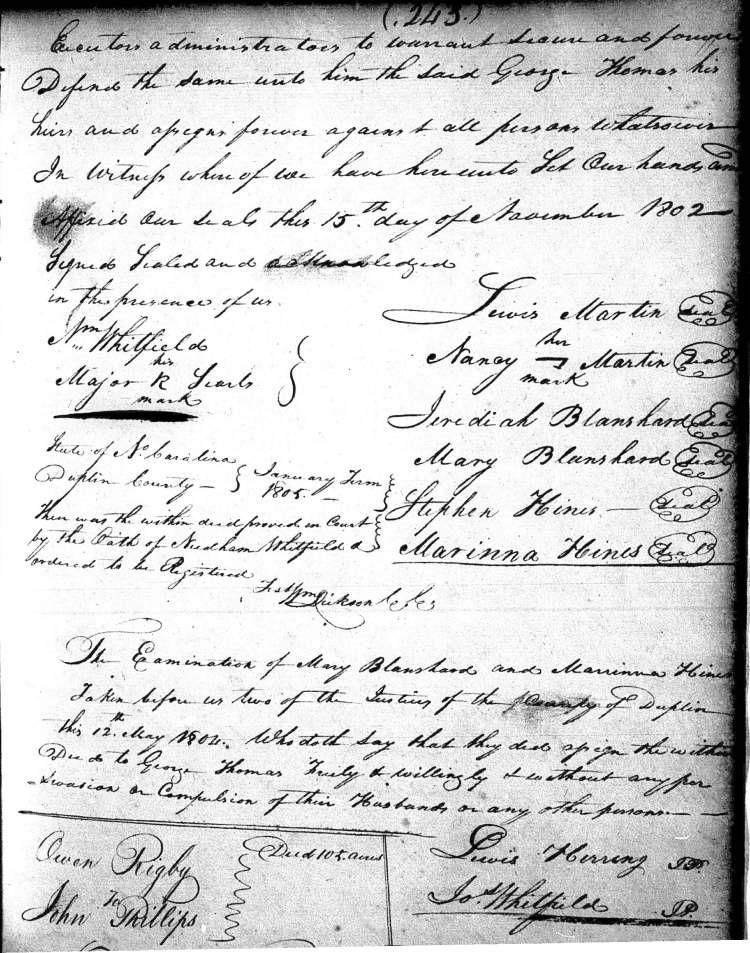 (.243.)
Executors administrators to warrant secure and forever
Defend the same unto him the said George Thomas his
heirs and assigns forever against all persons whatsoever
In Witness where of we have here unto Set Our hands and
Affixed Our seals this 15.th day of November 1802
Signed Sealed and acknowledged
in the presence of us
Nm. Whitfield
his
Major R Searls
mark
Lewis Martin Seal
her
Nancy Martin Seal
mark
Jerediah Blanshard Seal
Mary Blanshard Seal
Stephen Hines — Seal
Marinna Hines Seal
State of No. Carolina
Duplin County — January Term
1805. —
Then was the within deed proved in Court
by the Oath of Needham Whitfield &
ordered to be Registered
Test Wm Dickson
The Examination of Mary Blanshard and Marrinna Hines
Taken before us two of the Justices of the County of Duplin
this 12.th May 1804. Who doth say that they did assign the within
Deed to George Thomas Freely & willingly & without any per
swasion or Compulsion of their Husbands or any other persons —
Lewis Herring JP.
Jos. Whitfield JP.
Owen Rigby
To
John Phillips
Deed 105. acres